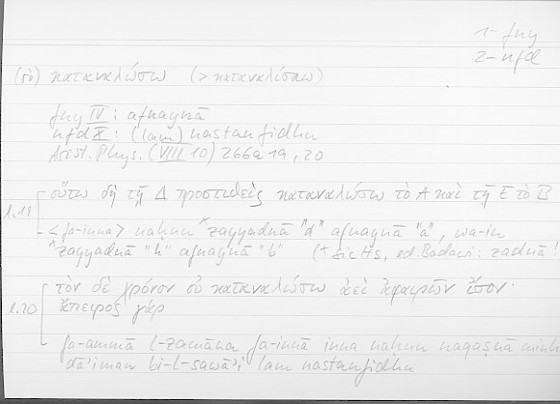 1 - fny
2 - nfd
(οὐ) καταναλώσω (> καταναλίσκω)
fny IV : afnaynā
nfd X : (lam) nastanfidhu
Arist. Phys. (VIII 10) 266a 19, 20
l. 19
οὕτω δὴ τῇ Δ προστιθεὶς καταναλώσω τὸ Α καὶ τῇ Ε τὸ Β
<fa-inna> nahnu *zayyadnā "d" afnaynā "a", wa-in
*zayyadnā "h" afnaynā "b" (* sic Hs, ed. Badawi: zadnā!
l. 20
τὸν δὲ χρόνον οὐ καταναλώσω ἀεὶ ἀφαιρῶν ἴσον·
ἄπειρος γάρ
fa-ammā l-zamāna fa-innā inna nahnu naqaṣnā minhu
dā'iman bi-l-sawā'i lam nastanfidhu